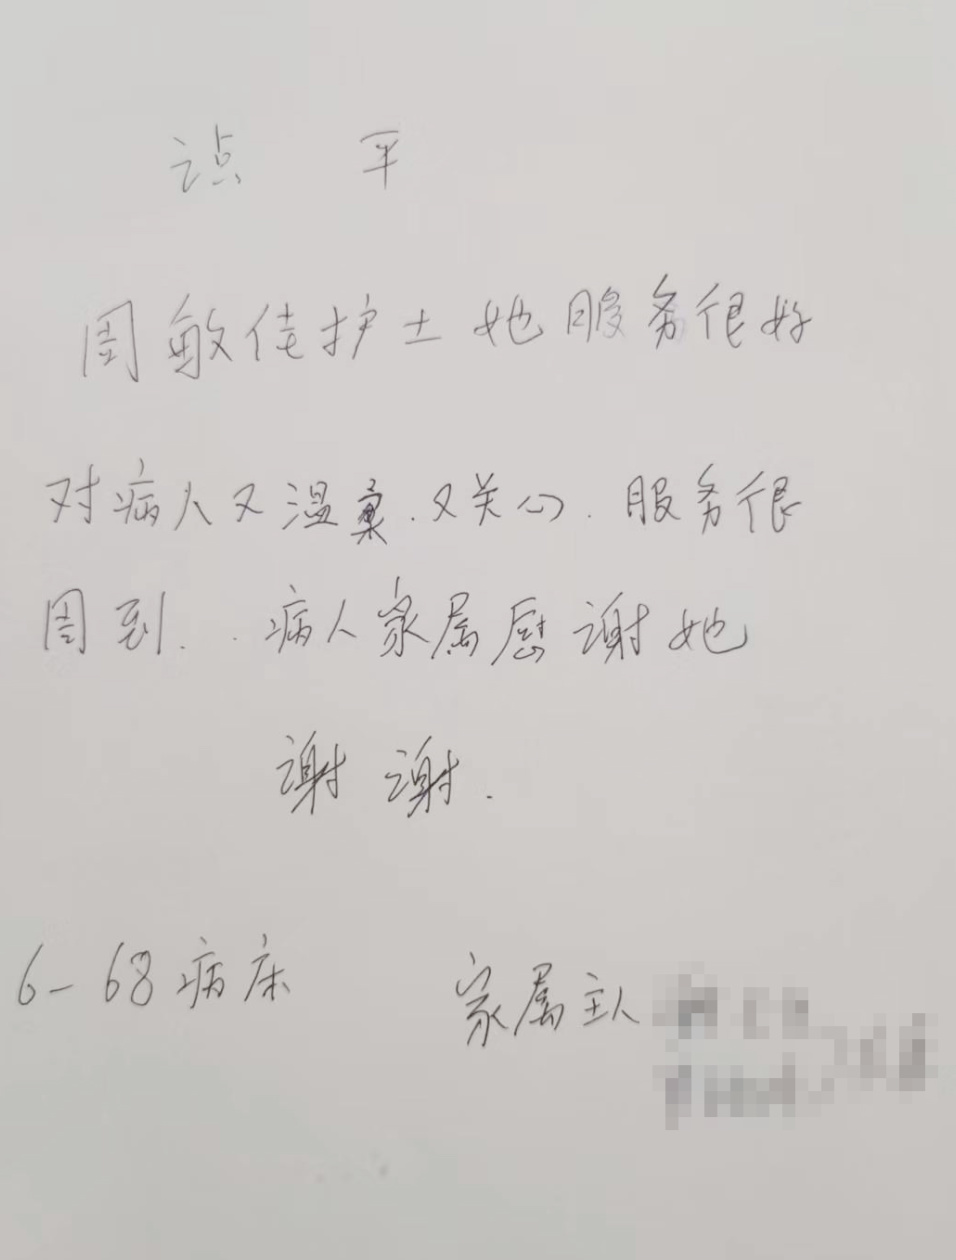 点 平
周敏佳护士她服务很好
对病人又温柔.又关心.服务很
周到..病人家属感谢她
谢谢.
6-68病床 家属主人